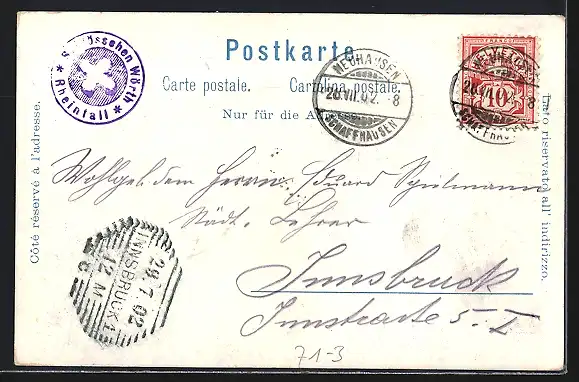 Postkarte
Carte postale. Cartolina postale.
Nur für die Adresse.
Côté réservé à l'adresse.
Lato riservato all' indirizzo.
Schlösschen Wörth
* Rheinfall *
NEUHAUSEN
28.VII.02. - 8
SCHAFFHAUSEN
HELVETIA
10
NEUHAUSEN
28.VII.02. - 8
SCHAFFHAUSEN
Wohlgeb. dem Herrn Eduard Spielmann
Städt. Lehrer
Innsbruck
Innstraße 5. I
INNSBRUCK 1
29.7.02
12.M
71-3